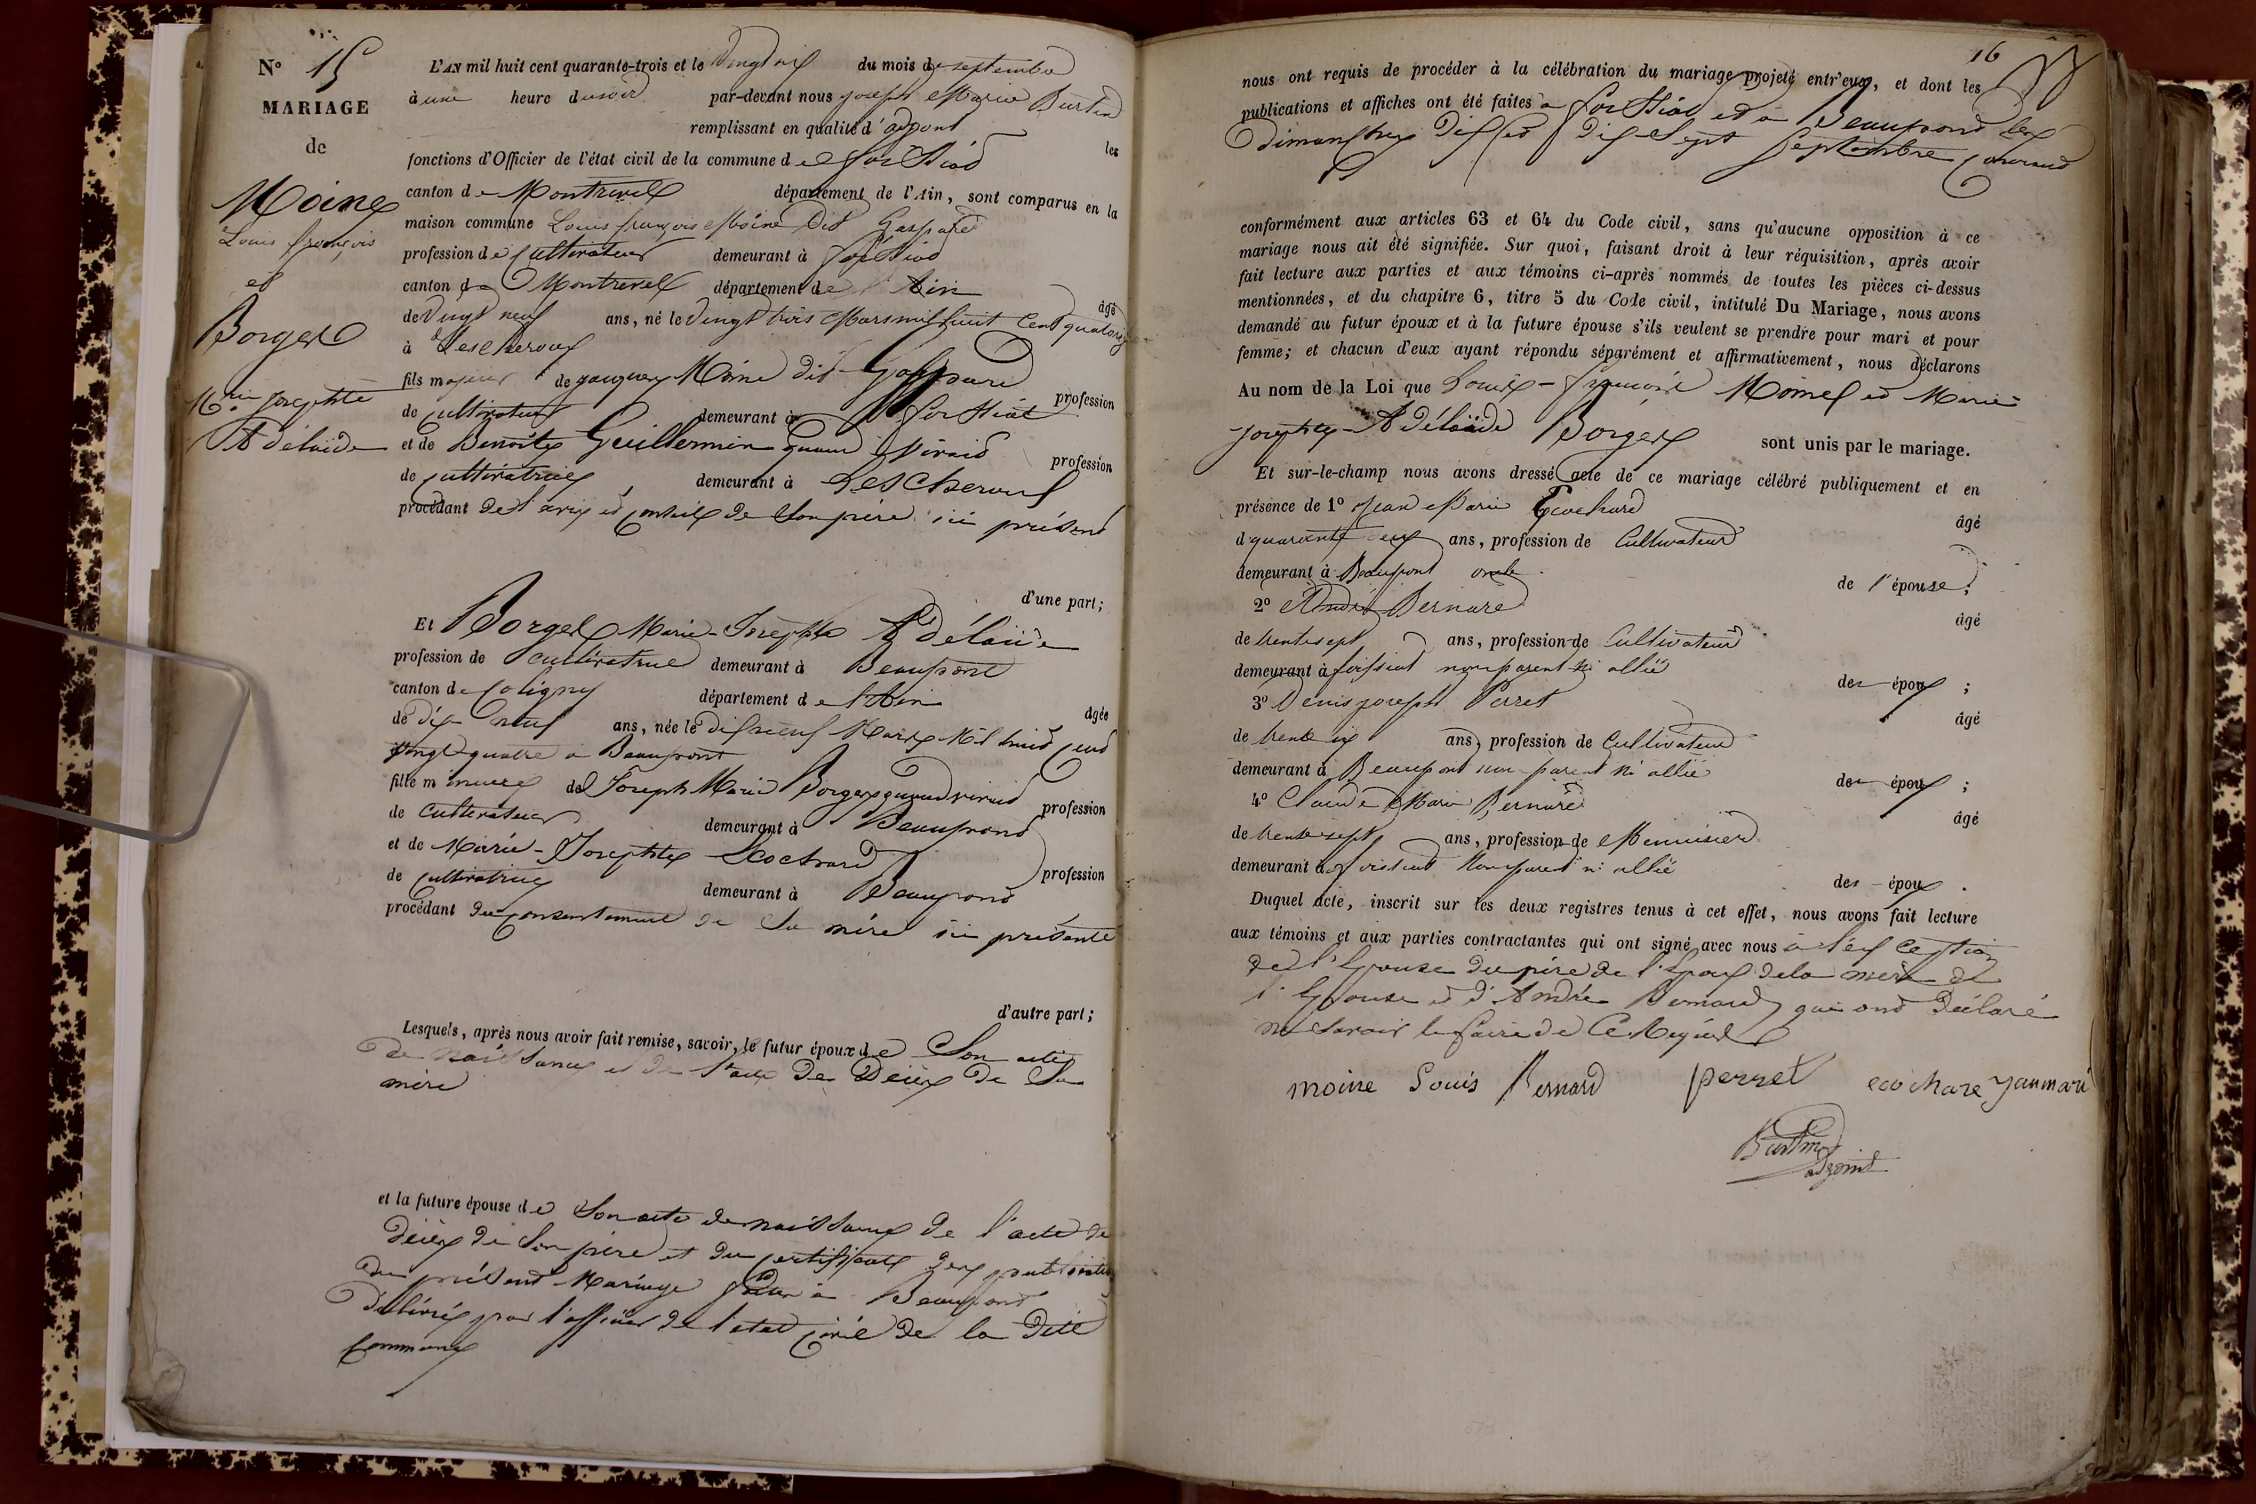 N° 15
MARIAGE
de
Moine
Louis françois
et
Borges
M.rie josephte
Adélaïde
L'AN mil huit cent quarante-trois et le vingt six du mois de septembre
à une heure du soir par-devant nous joseph Marie Burtin
remplissant en qualité d'adjoint les
fonctions d'Officier de l'état civil de la commune de foissiat
canton de Montrevel département de l'Ain, sont comparus en la
maison commune Louis françois Moine dit Gaspard
profession de Cultivateur demeurant à foissiat
canton de Montrevel département de l'Ain âgé
de vingt neuf ans, né le vingt trois Mars mil huit cent quatorze
à Lescheroux
fils majeur de jacques Moine dit Gaspard profession
de cultivateur demeurant à foissiat
et de Benoite Guillermin quand vivait profession
de cultivatrice demeurant à Lescheroux
procédant de l'avis et conseil de son pere ici présent
d'une part;
Et Borges Marie-Josephte Adélaïde
profession de cultivatrice demeurant à Beaupont
canton de Coligny département de l'Ain âgée
de dix neuf ans, née le dix neuf Mars Mil huit cent
vingt quatre à Beaupont
fille mineure de Joseph Marie Borges quand vivait profession
de cultivateur demeurant à Beaupont
et de Marie-Josephte Ecochard profession
de cultivatrice demeurant à Beaupont
procédant du consentement de sa mère ici présente
d'autre part;
Lesquels, après nous avoir fait remise, savoir, le futur époux de Son acte
de naissance et de l'acte de Décès de Sa
mère
et la future épouse de Son acte de naissance de l'acte de
décès de Son père et du certificat des publications
du présent Mariage à Beaupont
délivré par l'officier de l'état civil de la dite
Commune
16
nous ont requis de procéder à la célébration du mariage projeté entr'eux, et dont les
publications et affiches ont été faites à foissiat et à Beaupont les
Dimanches dix et dix Sept Septembre courant
conformément aux articles 63 et 64 du Code civil, sans qu'aucune opposition à ce
mariage nous ait été signifiée. Sur quoi, faisant droit à leur réquisition, après avoir
fait lecture aux parties et aux témoins ci-après nommés de toutes les pièces ci-dessus
mentionnées, et du chapitre 6, titre 5 du Code civil, intitulé Du Mariage, nous avons
demandé au futur époux et à la future épouse s'ils veulent se prendre pour mari et pour
femme; et chacun d'eux ayant répondu séparément et affirmativement, nous déclarons
Au nom de la Loi que Louis-françois Moine et Marie-
josephte Adélaïde Borges sont unis par le mariage.
Et sur-le-champ nous avons dressé acte de ce mariage célébré publiquement et en
présence de 1° Jean Marie Ecochard âgé
d quarante deux ans, profession de Cultivateur
demeurant à Beaupont oncle de l'épouse;
2° André Bernard âgé
de trente sept ans, profession de Cultivateur
demeurant à foissiat non parent ni allié des époux;
3° Denis joseph Perret âgé
de trente six ans, profession de Cultivateur
demeurant à Beaupont non parent ni allié des époux;
4° Claude Marie Bernard âgé
de trente sept ans, profession de Menuisier
demeurant à foissiat Non parent ni allié des époux.
Duquel acte, inscrit sur les deux registres tenus à cet effet, nous avons fait lecture
aux témoins et aux parties contractantes qui ont signé avec nous à l'exception
de l'Epouse du père de l'Epoux de la mère de
l'Epouse et d'André Bernard qui ont déclaré
ne savoir le faire de ce requis
moine Louis Bernard perret ecochare jan mari
Burtin
adjoint